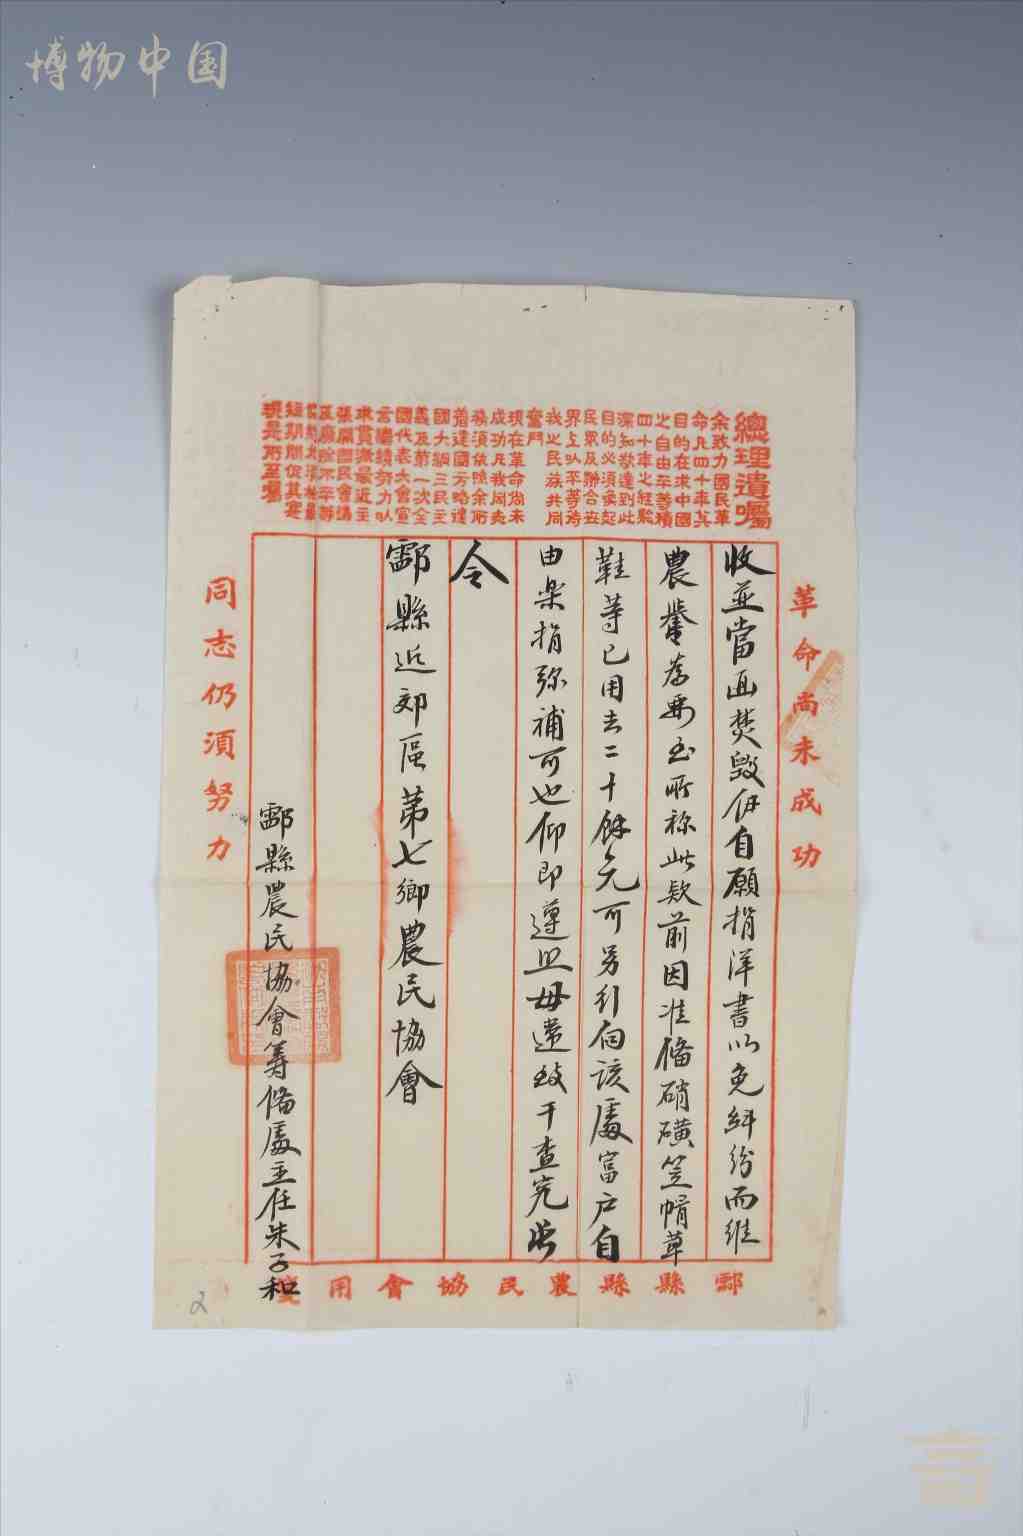 博物中国
總理遺囑
余致力國民革
命凡四十年其
目的在求中國
之自由平等積
四十年之經驗
深知欲達到此
目的必須喚起
民眾及聯合世
界上以平等待
我之民族共同
奮鬥
現在革命尚未
成功凡我同志
務須依照余所
著建國方略建
國大綱三民主
義及第一次全
國代表大會宣
言繼續努力以
求貫澈最近主
張開國民會議
及廢除不平等
短期間促其實
現是所至囑
革命尚未成功
收並當面焚毀伊自願捐洋書以免糾紛而維
農譽為要至所称此款前因准俻硝磺笠帽草
鞋等已用去二十餘元可另行向該處富户自
由樂捐弥補可也仰即遵照毋違致干查究此
令
酃縣近郊區第七鄉農民協會
酃縣農民協會籌俻處主任朱子和
同志仍須努力
酃縣縣農民協會用箋
2